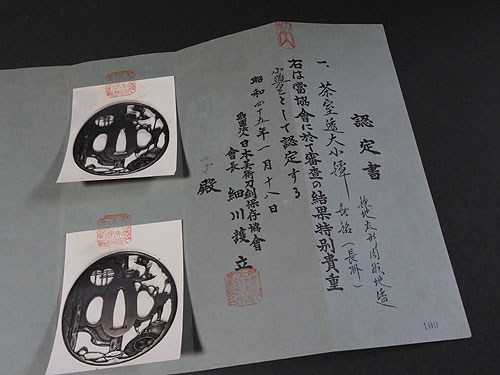 認定書
一、茶室透大小鐔 無銘(長州)
右は當協會に於て審査の結果特別貴重
小道具として認定する
昭和四十五年一月十八日
財團法人日本美術刀劍保存協會
會長 細川護立
殿
100